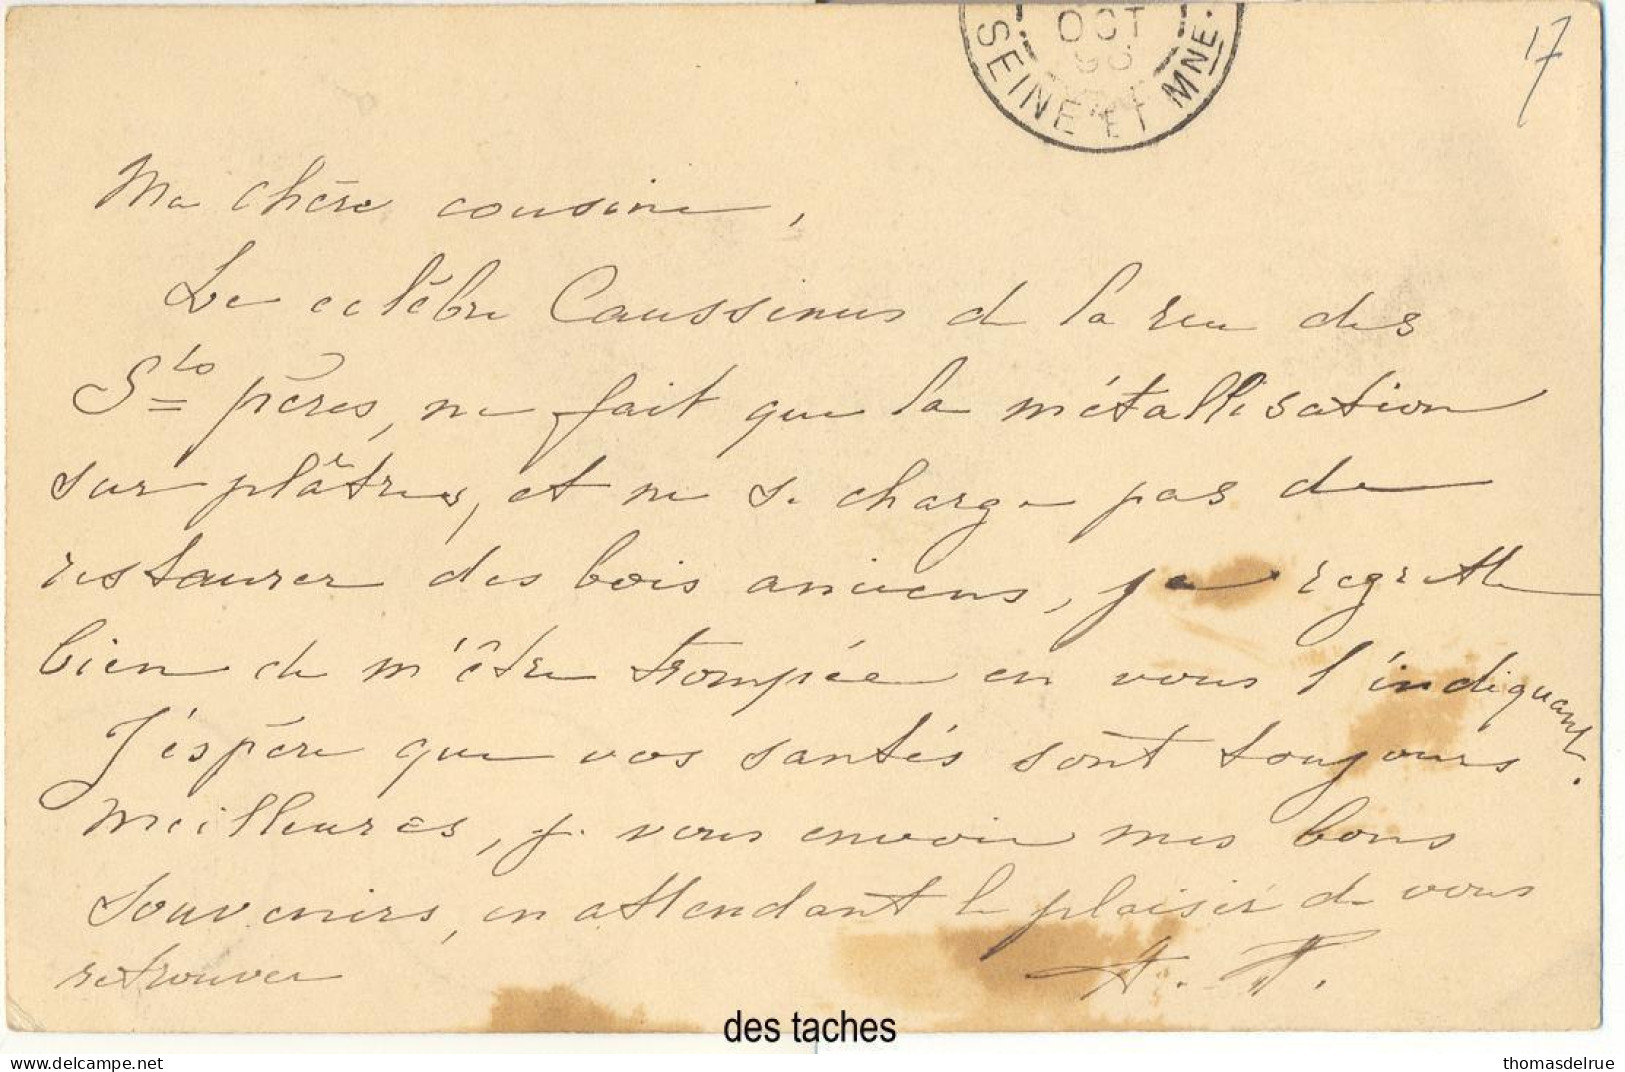 OCT
SEINE ET MNE.
17
Ma chère cousine,
Le célèbre Caussinus de la rue des
Sts pères, ne fait que la métallisation
sur plâtres, et ne se charge pas de
restaurer des bois anciens, je regrette
bien de m'être trompée en vous l'indiquant.
J'éspère que vos santés sont toujours
meilleures, je vous envoie mes bons
souvenirs, en attendant le plaisir de vous
retrouver
des taches
thomasdelrue